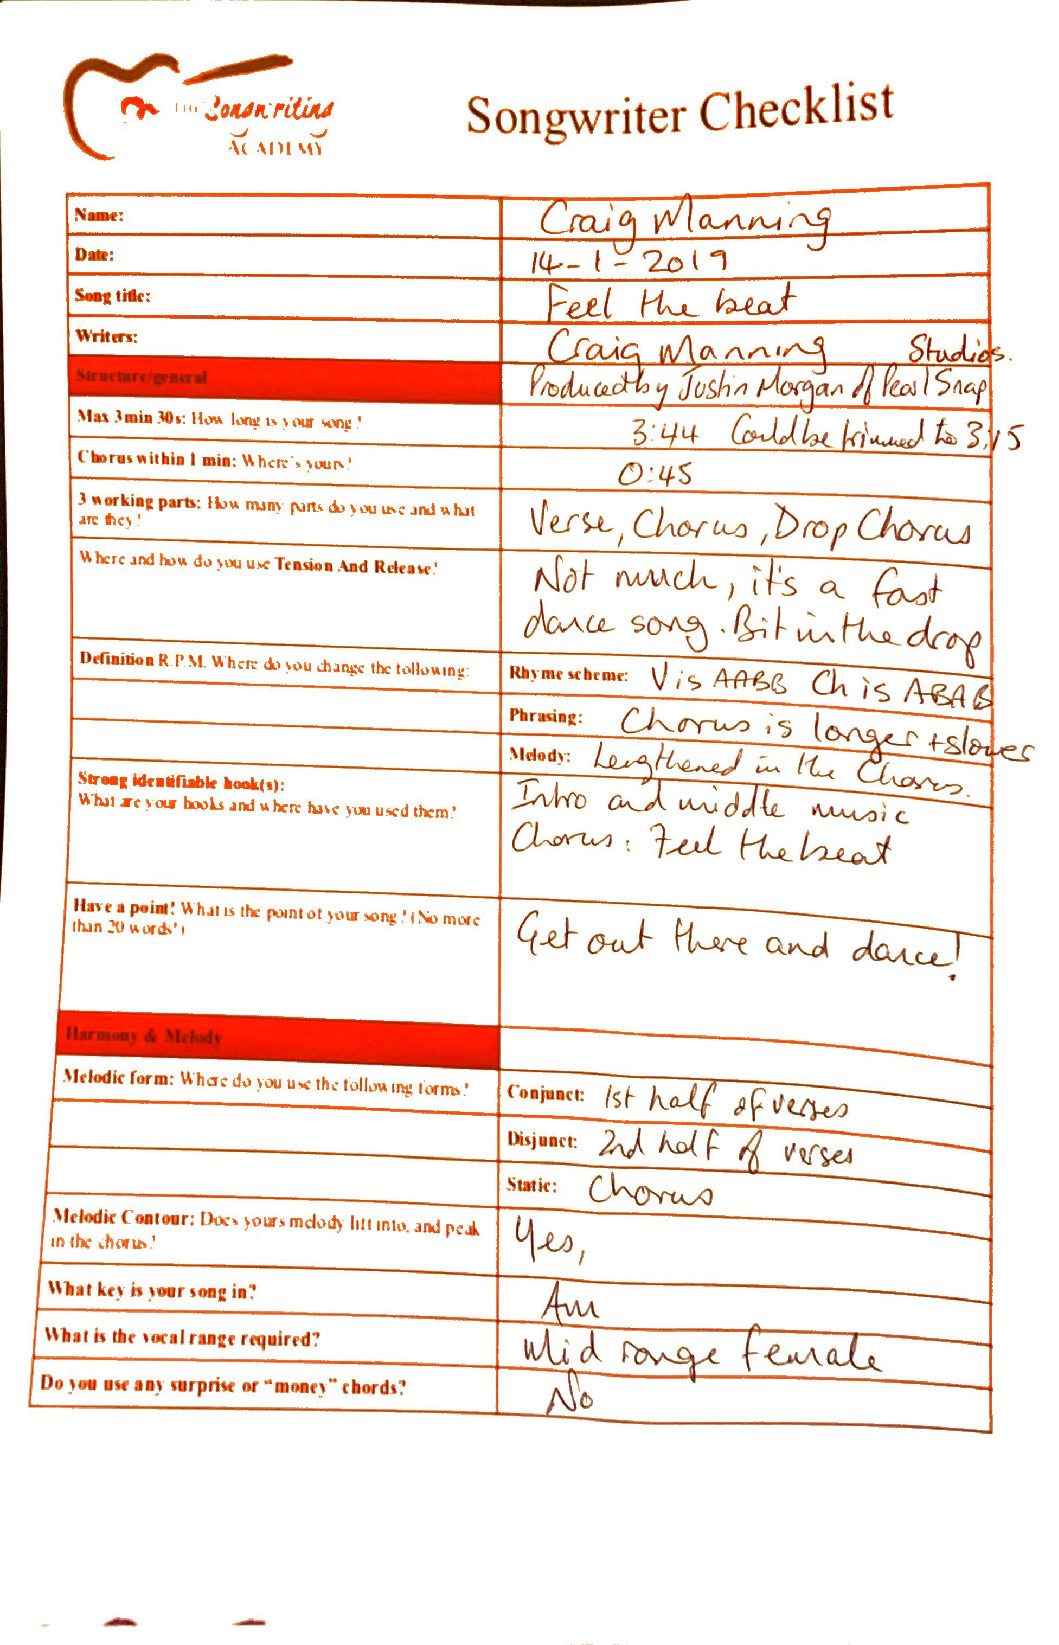 THE Songwriting
ACADEMY
Songwriter Checklist
Name: Craig Manning
Date: 14-1-2019
Song title: Feel the beat
Writers: Craig Manning Studios.
Structure/general Produced by Justin Morgan of Pearl Snap
Max 3min 30s: How long is your song? 3:44 Could be trimmed to 3:15
Chorus within 1 min: Where's yours? 0:45
3 working parts: How many parts do you use and what
are they? Verse, Chorus, Drop Chorus
Where and how do you use Tension And Release? Not much, it's a fast
dance song. Bit in the drop
Definition R.P.M. Where do you change the following: Rhyme scheme: V is AABB Ch is ABAB
Phrasing: Chorus is longer + slower
Melody: Lengthened in the Chorus.
Strong identifiable hook(s): Intro and middle music
What are your hooks and where have you used them? Chorus: Feel the beat
Have a point! What is the point of your song? (No more
than 20 words!) Get out there and dance!
Harmony & Melody
Melodic form: Where do you use the following forms? Conjunct: 1st half of verses
Disjunct: 2nd half of verses
Static: Chorus
Melodic Contour: Does yours melody lift into, and peak
in the chorus? Yes,
What key is your song in? Am
What is the vocal range required? Mid range female
Do you use any surprise or "money" chords? No